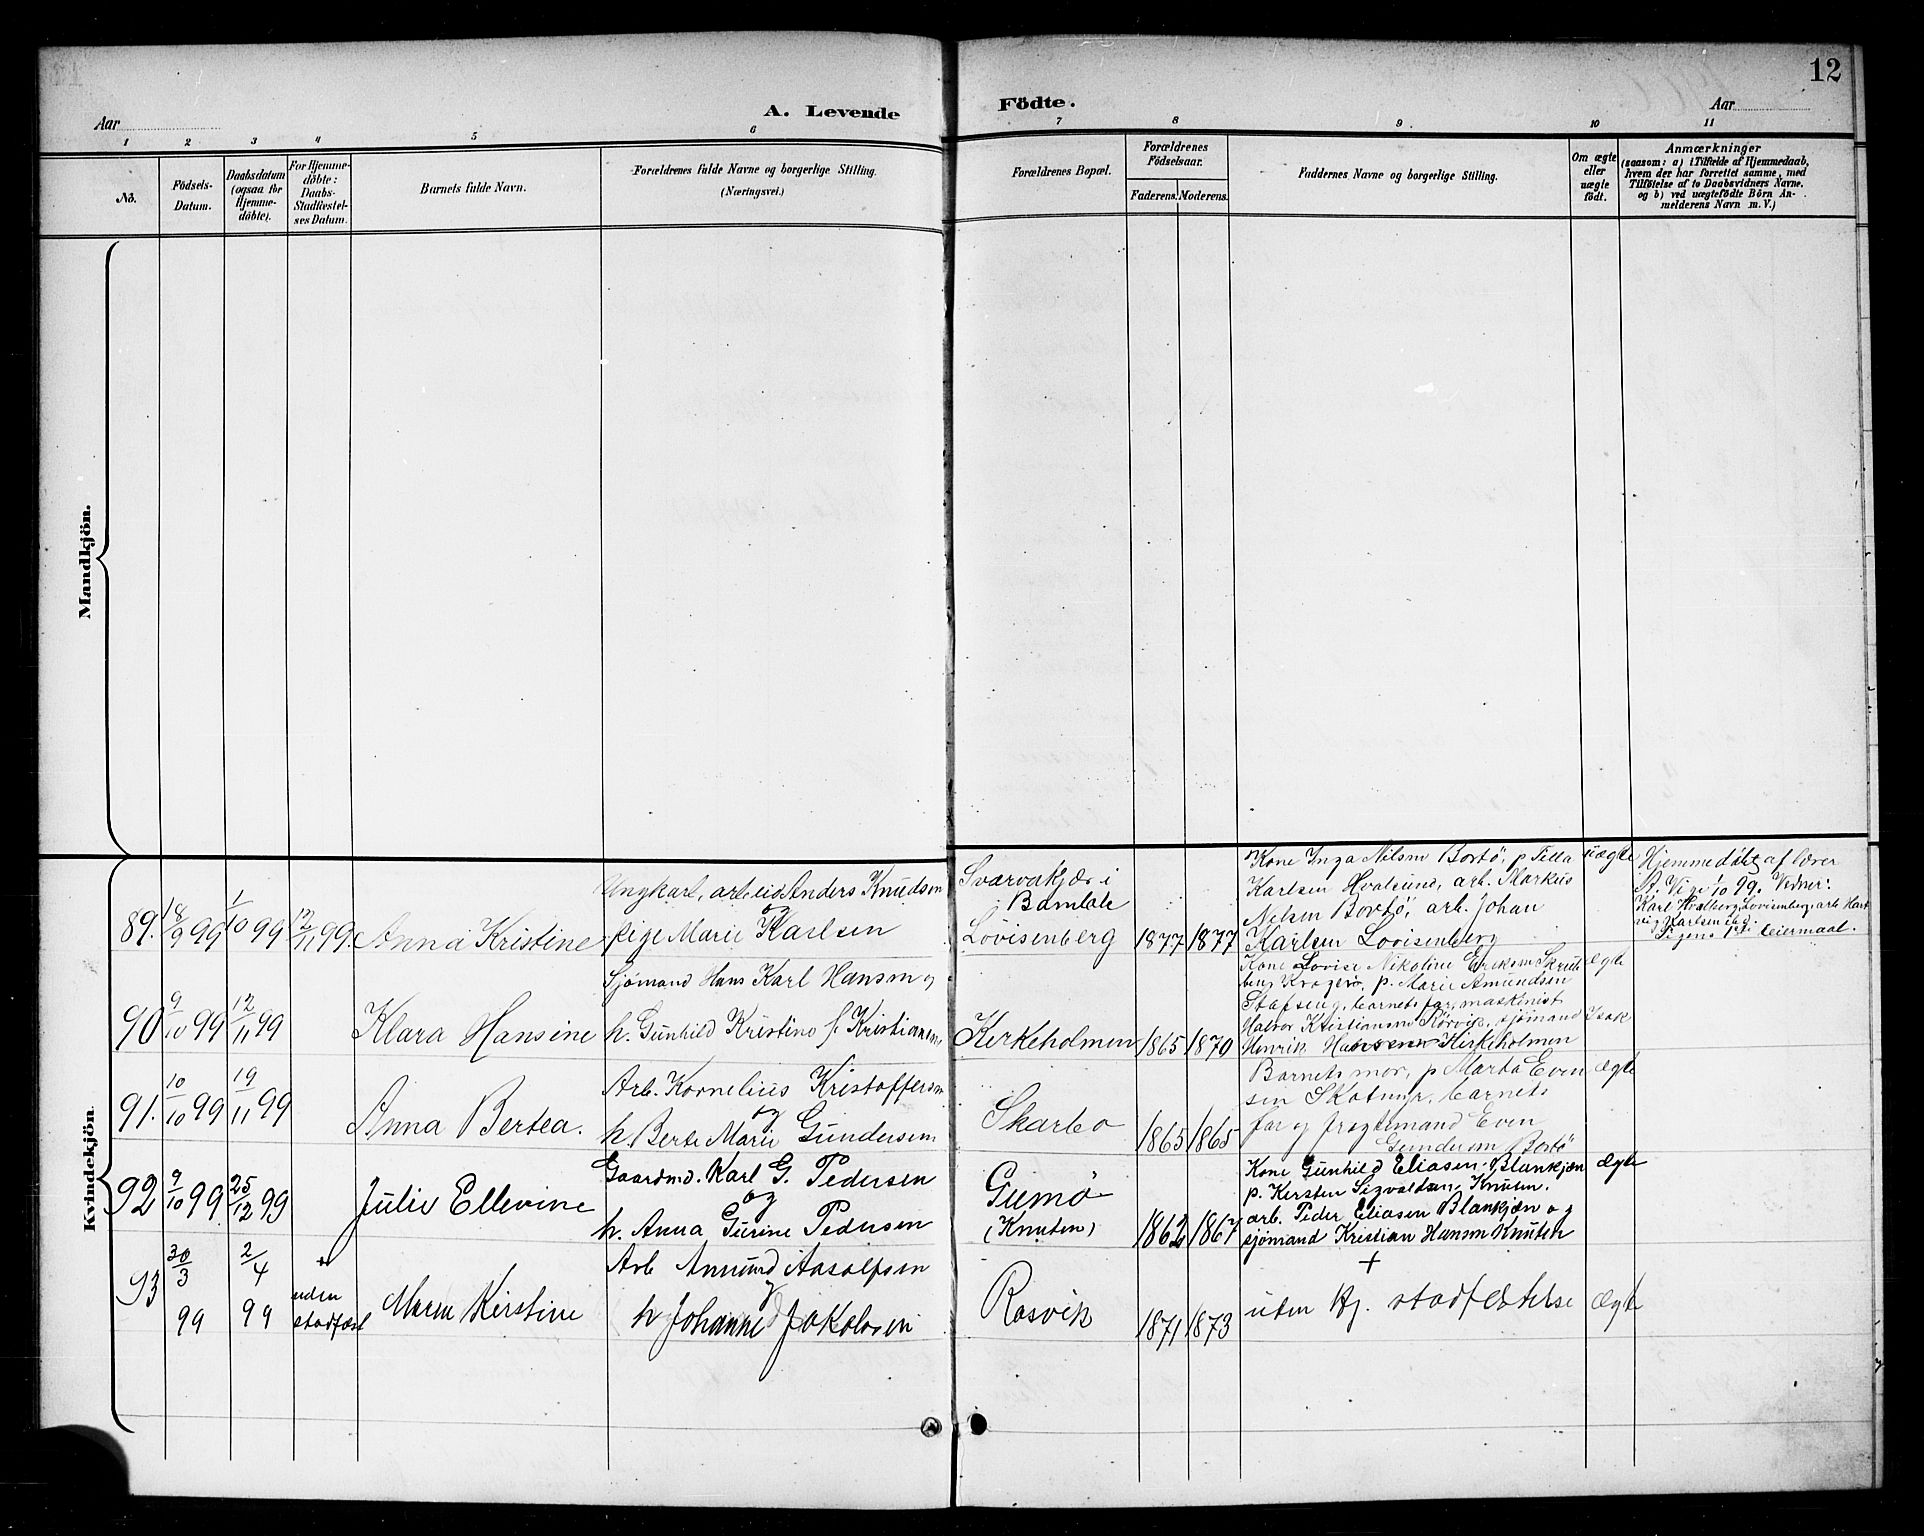 12
Aar
A. Levende
Födte.
Aar
1 2 3 4 5 6 7 8 9 10 11
No.
Födsels-
Datum.
Daabsdatum
(ogsaa for
Hjemme-
döbte).
For Hjemme-
döbte:
Daabs-
Stadfæstel-
ses Datum.
Barnets fulde Navn.
Forældrenes fulde Navne og borgerlige Stilling.
(Næringsvei.)
Forældrenes Bopæl.
Forældrenes
Födselsaar.
Faderens. Moderens.
Faddernes Navne og borgerlige Stilling.
Om ægte
eller
uægte
født.
Anmærkninger
(saasom: a) i Tilfælde af Hjemmedaab,
hvem der har forrettet samme, med
Tilföielse af to Daabsvidners Navne.
og b) ved uægtefödte Börn An-
melderens Navn m. V.)
Mandkjön.
Kvindekjön.
89. 18/9 99 1/10 99 12/11 99.
Anna Kristine
Ungkarl, arbeid. Anders Knudsen
og
pige Marie Karlsen
Svarvakjær i
Bamble
Lovisenberg
1877 1877
Kone Inga Nilsen Bortö, p. Tilla
Karlsen Hvalsund, arb. Markus
Nilsen Bortö, arb. Johan
Karlsen Lovisenberg
uægte
Hjemmedöbt af lærer
1/10 99. Vidner:
Karl Lovisenberg, arb. Hart
vig Karlsen ibd.
Pigens 1ste leiermaal.
90 9/10 99 12/11 99
Klara Hansine
Sjømand Hans Karl Hansen og
h. Gunhild Kristine f. Kristiansen
Kirkeholmen
1865 1870
Kone Lovise Nikoline Eriksen
Kragerø, p. Marie Amundsen
barnets far, maskinist
Halvor Kristiansen Rörvik, sjömand Isak
Henrik Hansen Kirkeholmen
ægte
91. 10/10 99 19/11 99
Anna Bertea.
Arb. Kornelius Kristoffersen
og
h. Berte Marie Gundersen
Skarbo
1865 1865
Barnets mor, p. Marta Even
sen barnets
far og Even
Gundersen Bortö
ægte
92 9/10 99 25/12 99
Julie Ellevine
Gaardmd. Karl G. Pedersen
og
h. Anna Gurine Pedersen
Gumö
(Knuten)
1862 1867
Kone Gunhild Eliasen Blankjæn
p. Kersten Sigvaldsen, Knuten.
arb. Peder Eliasen Blankjæn og
sjömand Kristian Hansen Knuten
ægte
93 30/3 99 2/4 99
uden
stadfæst
Maren Kirstine
Arb Amund Aasolfsen
og
h Johanne Jakobsen
Rosvik
1871 1873
+
uten kj. stadfæstelse
ægte